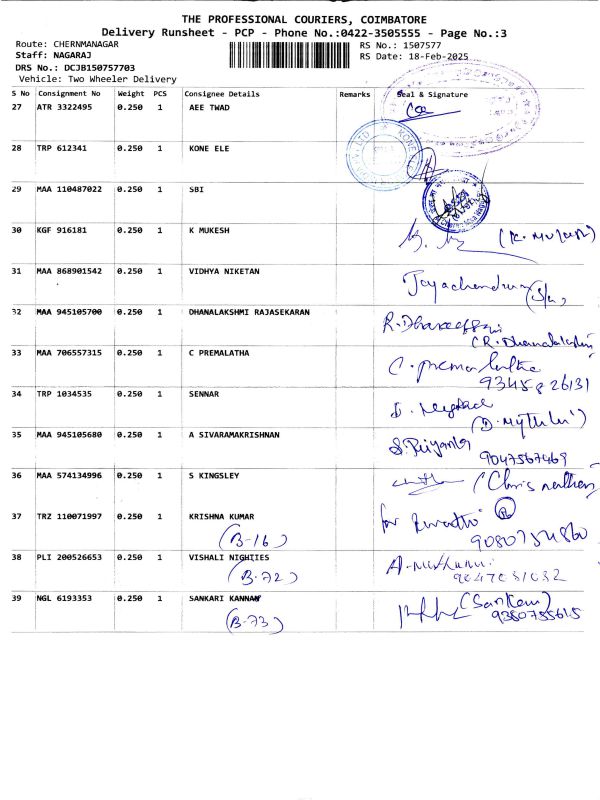 THE PROFESSIONAL COURIERS, COIMBATORE
Delivery Runsheet - PCP - Phone No.:0422-3505555 - Page No.:3
Route: CHERNMANAGAR RS No.: 1507577
Staff: NAGARAJ RS Date: 18-Feb-2025
DRS No.: DCJB150757703
Vehicle: Two Wheeler Delivery
S No Consignment No Weight PCS Consignee Details Remarks Seal & Signature
27 ATR 3322495 0.250 1 AEE TWAD
28 TRP 612341 0.250 1 KONE ELE
29 MAA 110487022 0.250 1 SBI
30 KGF 916181 0.250 1 K MUKESH
31 MAA 868901542 0.250 1 VIDHYA NIKETAN
Jayachandran
32 MAA 945105700 0.250 1 DHANALAKSHMI RAJASEKARAN
(R. Dhanalakshmi
33 MAA 706557315 0.250 1 C PREMALATHA C. premalatha
9345826131
34 TRP 1034535 0.250 1 SENNAR
35 MAA 945105680 0.250 1 A SIVARAMAKRISHNAN S. Priyanka
9047567469
36 MAA 574134996 0.250 1 S KINGSLEY
37 TRZ 110071997 0.250 1 KRISHNA KUMAR for
(B-16)
38 PLI 200526653 0.250 1 VISHALI NIGHTIES
(B-72)
39 NGL 6193353 0.250 1 SANKARI KANNAN
(B-73)